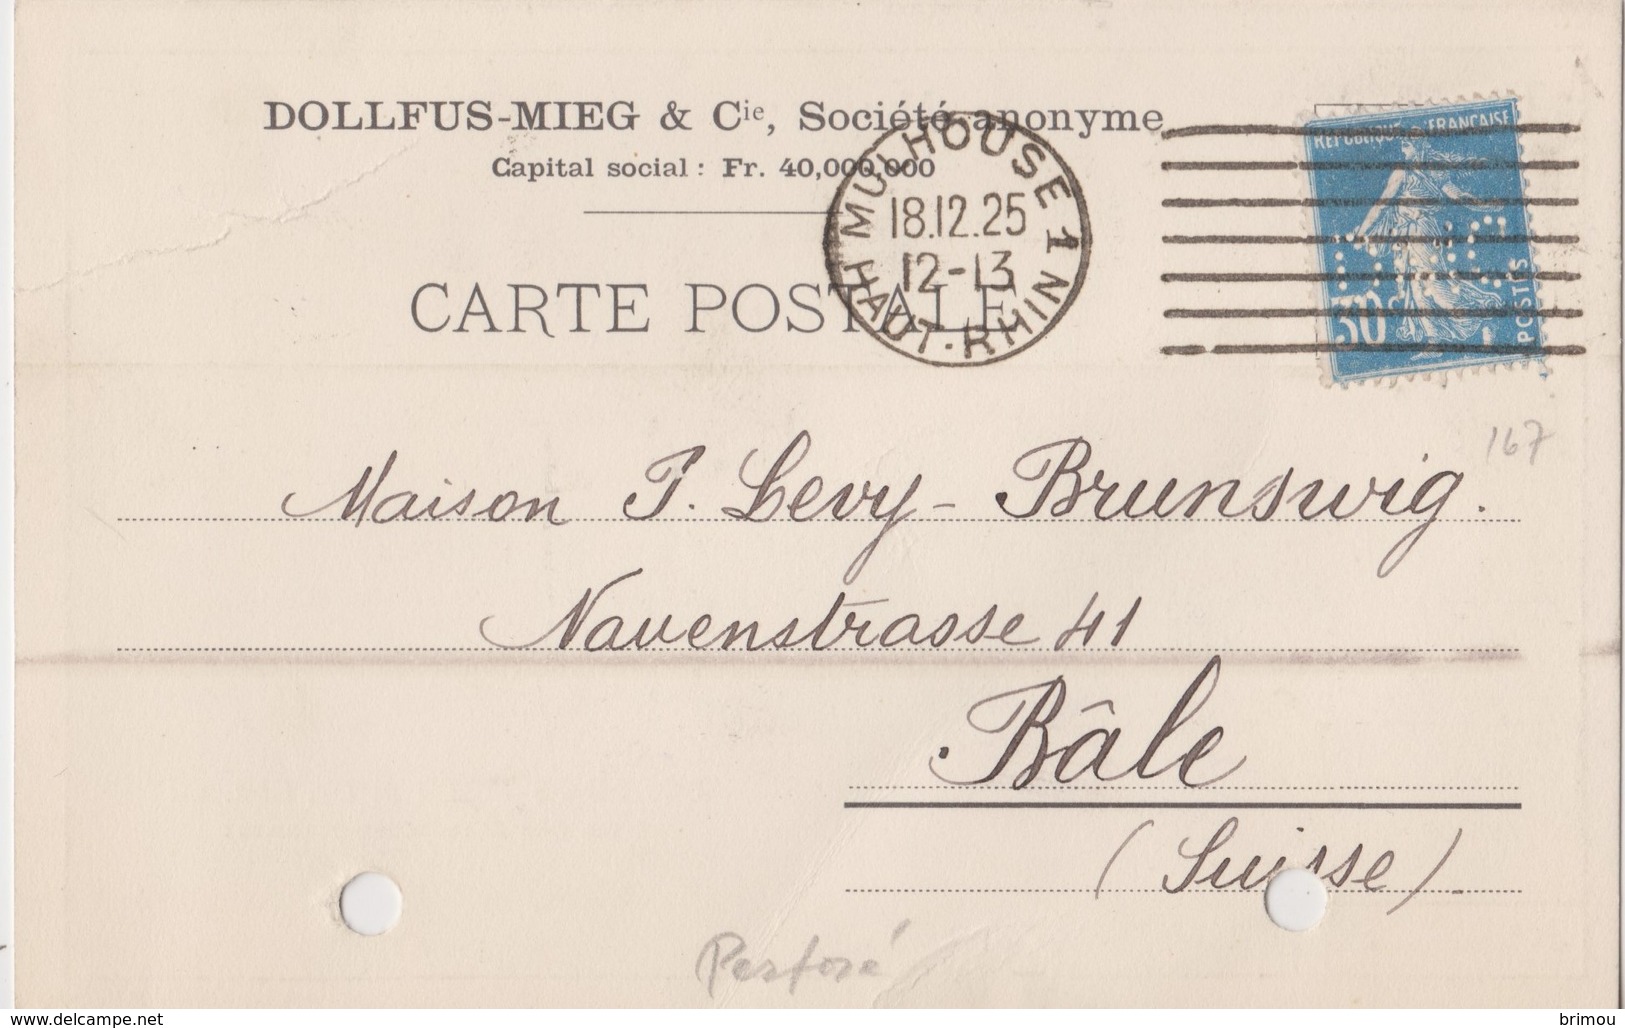 DOLLFUS-MIEG & Cie, Société anonyme
Capital social : Fr. 40,000,000
CARTE POSTALE
MULHOUSE 1
18.12.25
12-13
HAUT-RHIN
REPUBLIQUE FRANÇAISE
30
POSTES
167
Maison P. Levy-Brunswig.
Nauenstrasse 41
Bâle
(Suisse)
Perforé
www.delcampe.net
brimou